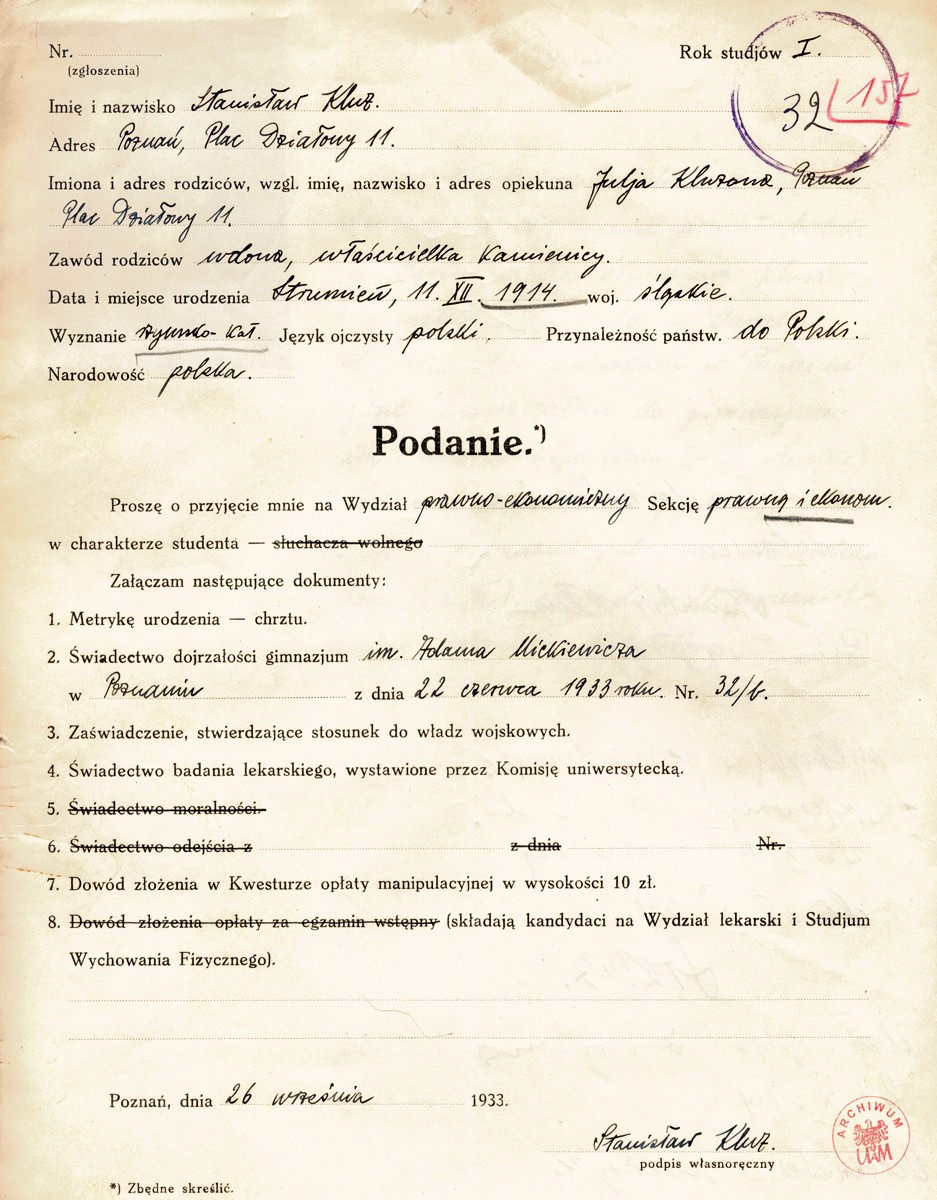 Nr.
(zgłoszenia)
Rok studjów I.
32 157
Imię i nazwisko Stanisław Kluz.
Adres Poznań, Plac Działowy 11.
Imiona i adres rodziców, wzgl. imię, nazwisko i adres opiekuna Julja Kluzowa, Poznań
Plac Działowy 11.
Zawód rodziców wdowa, właścicielka kamienicy.
Data i miejsce urodzenia Strumień, 11. XII. 1914. woj. śląskie.
Wyznanie rzymsko-kat. Język ojczysty polski. Przynależność państw. do Polski.
Narodowość polska.
Podanie.*)
Proszę o przyjęcie mnie na Wydział prawno-ekonomiczny Sekcję prawną i ekonom.
w charakterze studenta — słuchacza wolnego
Załączam następujące dokumenty:
1. Metrykę urodzenia — chrztu.
2. Świadectwo dojrzałości gimnazjum im. Adama Mickiewicza
w Poznaniu z dnia 22 czerwca 1933 roku. Nr. 32/b.
3. Zaświadczenie, stwierdzające stosunek do władz wojskowych.
4. Świadectwo badania lekarskiego, wystawione przez Komisję uniwersytecką.
5. Świadectwo moralności.
6. Świadectwo odejścia z z dnia Nr.
7. Dowód złożenia w Kwesturze opłaty manipulacyjnej w wysokości 10 zł.
8. Dowód złożenia opłaty za egzamin wstępny (składają kandydaci na Wydział lekarski i Studjum
Wychowania Fizycznego).
Poznań, dnia 26 września 1933.
Stanisław Kluz.
podpis własnoręczny
ARCHIWUM
UAM
*) Zbędne skreślić.